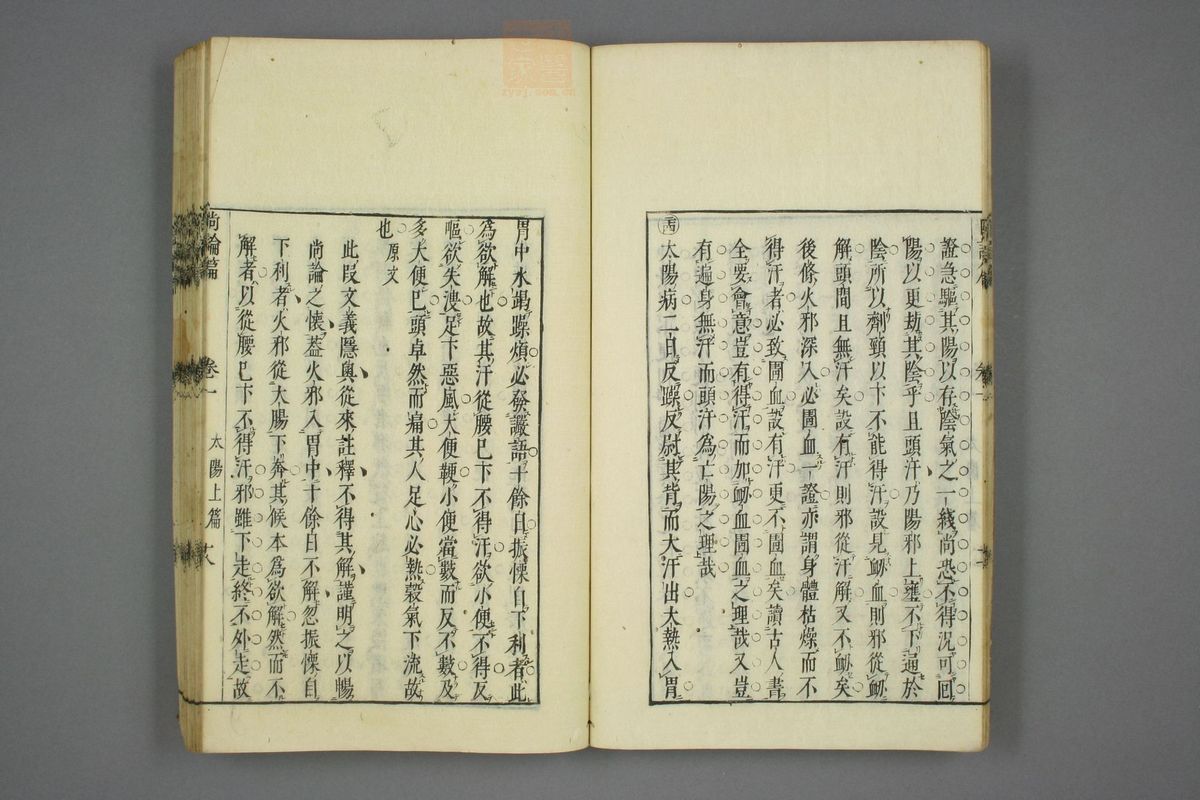 證急驅其陽以存陰氣之一綫尚恐不得況可回
陽以更劫其陰乎且頭汗乃陽邪上壅不下逼於
陰所以劑頸以下不能得汗設見衂血則邪從衂
解頭間且無汗矣設有汗則邪從汗解又不衂矣
後條火邪深入必圊血一證亦謂身體枯燥而不
得汗者必致圊血設有汗更不圊血矣讀古人書
全要會意豈有得汗而加衂血圊血之理哉又豈
有遍身無汗而頭汗為亡陽之理哉
太陽病二日反躁反尉其背而大汗出大熱入胃
胃中水竭躁煩必發譫語十餘日振慄自下利者此
為欲解也故其汗從腰已下不得汗欲小便不得反
嘔欲失溲足下惡風大便鞕小便當數而反不數及
多大便已頭卓然而痛其人足心必熱穀氣下流故
也 原文
此段文義隱奥從來註釋不得其解謹明之以暢
尚論之懷蓋火邪入胃中十餘日不解忽振慄自
下利者火邪從大腸下奔其候本為欲解然而不
解者以從腰已下不得汗邪雖下走終不外走故
尚論篇 卷一 太陽上篇
zysj.com.cn